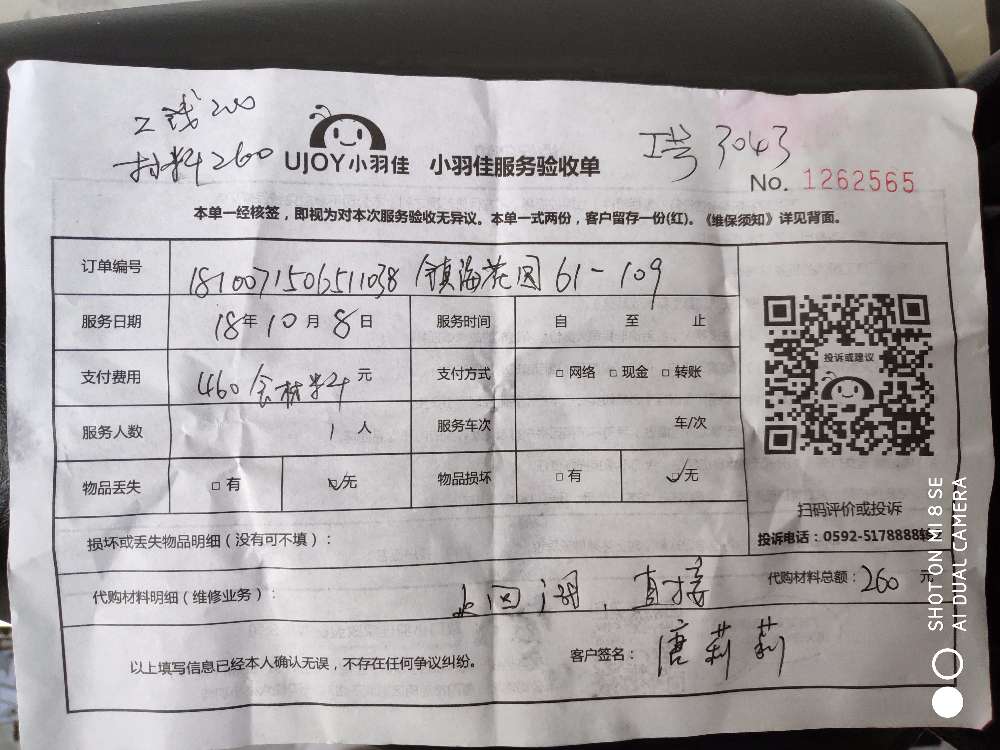 工钱200
材料260
UJOY小羽佳 小羽佳服务验收单
工号 3043
No. 1262565
本单一经核签，即视为对本次服务验收无异议。本单一式两份，客户留存一份(红)。《维保须知》详见背面。
订单编号 181007150651038 镇海花园 61-109
服务日期 18年10月8日 服务时间 自 至 止
支付费用 460含材料 元 支付方式 □网络 □现金 □转账
服务人数 1人 服务车次 车/次
物品丢失 □有 ☑无 物品损坏 □有 ☑无
投诉或建议
扫码评价或投诉
投诉电话：0592-5178888转2
损坏或丢失物品明细（没有可不填）：
代购材料明细（维修业务）： 直接
代购材料总额：260元
以上填写信息已经本人确认无误，不存在任何争议纠纷。 客户签名：唐莉莉
SHOT ON MI 8 SE
AI DUAL CAMERA